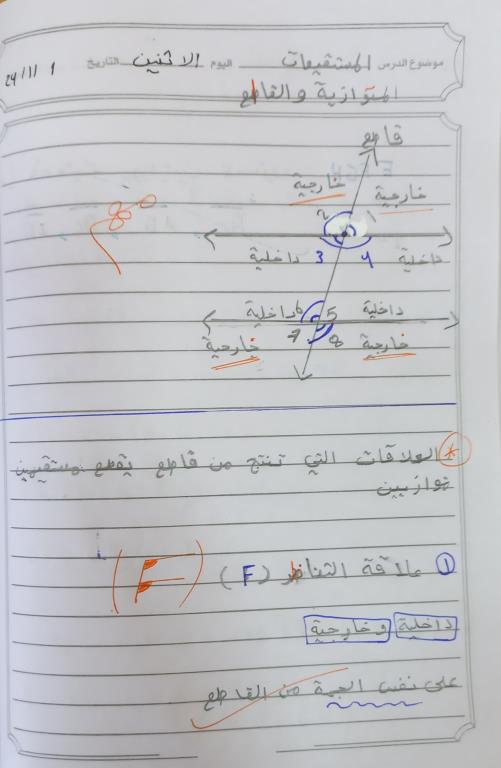 موضوع الدرس المستقيمات اليوم الاثنين التاريخ 24/11/
المتوازية والقاطع
قاطع
خارجية خارجية
2 1
داخلية 3 4 داخلية
داخلية 6 5 داخلية
خارجية 7 8 خارجية
* العلاقات التي تنتج من قاطع يقطع مستقيمين
توازيين
① علاقة التناظر (F) (F)
داخلية وخارجية
على نفس الجهة من القاطع